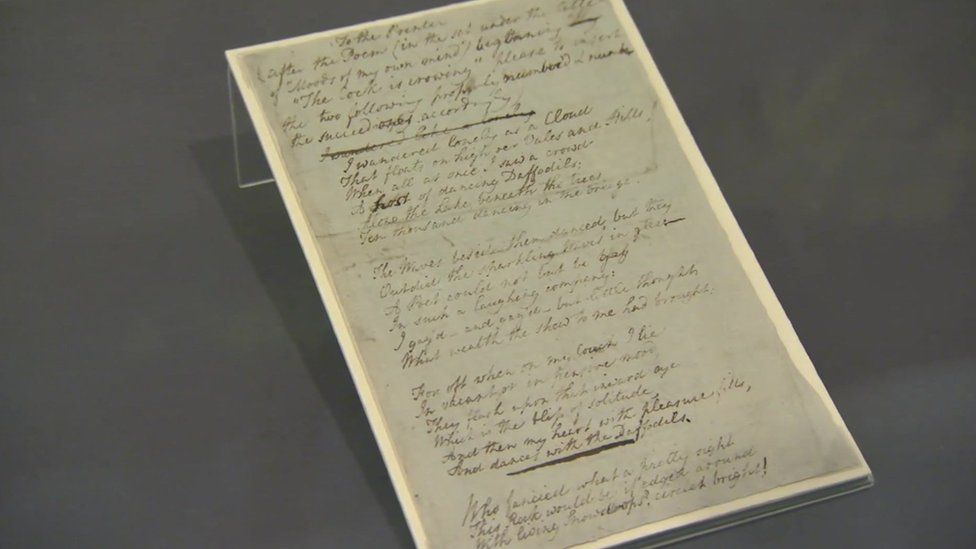 To the Printer
(after the Poem (in the set under the title
of "Moods of my own mind") beginning
"The Cock is crowing" please to insert
the two following properly numbered & number
the succeeding ones accordingly)
I wandered like a lonely
I wandered lonely as a Cloud
That floats on high o'er Vales and Hills,
When all at once I saw a crowd
A host of dancing Daffodils;
Along the Lake, beneath the trees,
Ten thousand dancing in the breeze.
The Waves beside them danced, but they
Outdid the sparkling Waves in glee:—
A Poet could not but be gay
In such a laughing company:
I gaz'd—and gaz'd—but little thought
What wealth the show to me had brought:
For oft when on my couch I lie
In vacant or in pensive mood,
They flash upon that inward eye
Which is the bliss of solitude,
And then my heart with pleasure fills,
And dances with the Daffodils.
Who fancied what a pretty sight
This Rock would be if edged around
With living Snowdrops? circlet bright!